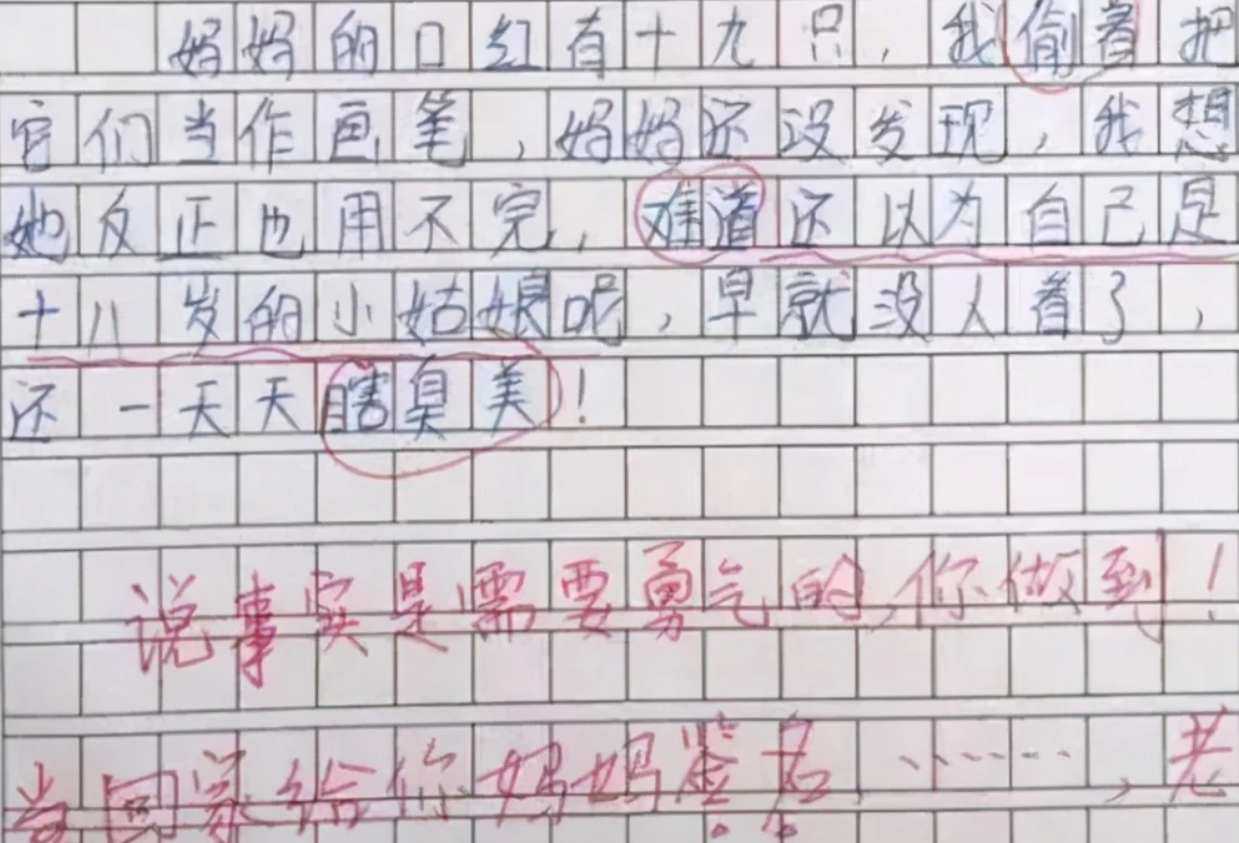 妈妈的口红有十九只，我偷着把
它们当作画笔，妈妈还没发现，我想
她反正也用不完，难道还以为自己是
十八岁的小姑娘呢，早就没人看了，
还一天天瞎臭美！
说事实是需要勇气的，你做到！
回家给你妈妈签名……，老